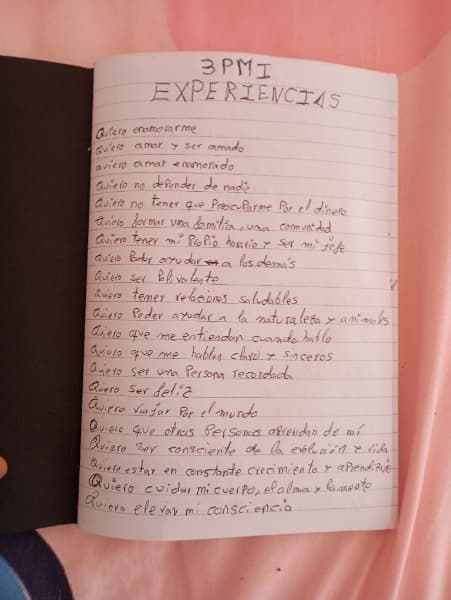 3PMI
EXPERIENCIAS
Quiero enamorarme
Quiero amar y ser amado
Quiero amar enamorado
Quiero no depender de nadie
Quiero no tener que Preocuparme Por el dinero
Quiero formar una familia, una comunidad
Quiero tener mi Propio horario y ser mi jefe
Quiero Poder ayudar a los demás
Quiero ser Polivalente
Quiero tener relaciones saludables
Quiero Poder ayudar a la naturaleza y animales
Quiero que me entiendan cuando hablo
Quiero que me hablen claro y sinceros
Quiero ser una Persona recordada
Quiero ser feliz
Quiero viajar Por el mundo
Quiero que otras Personas aprendan de mí
Quiero ser consciente de la evolución y vida
Quiero estar en constante crecimiento y aprendizaje
Quiero cuidar mi cuerpo, el alma y la mente
Quiero elevar mi consciencia